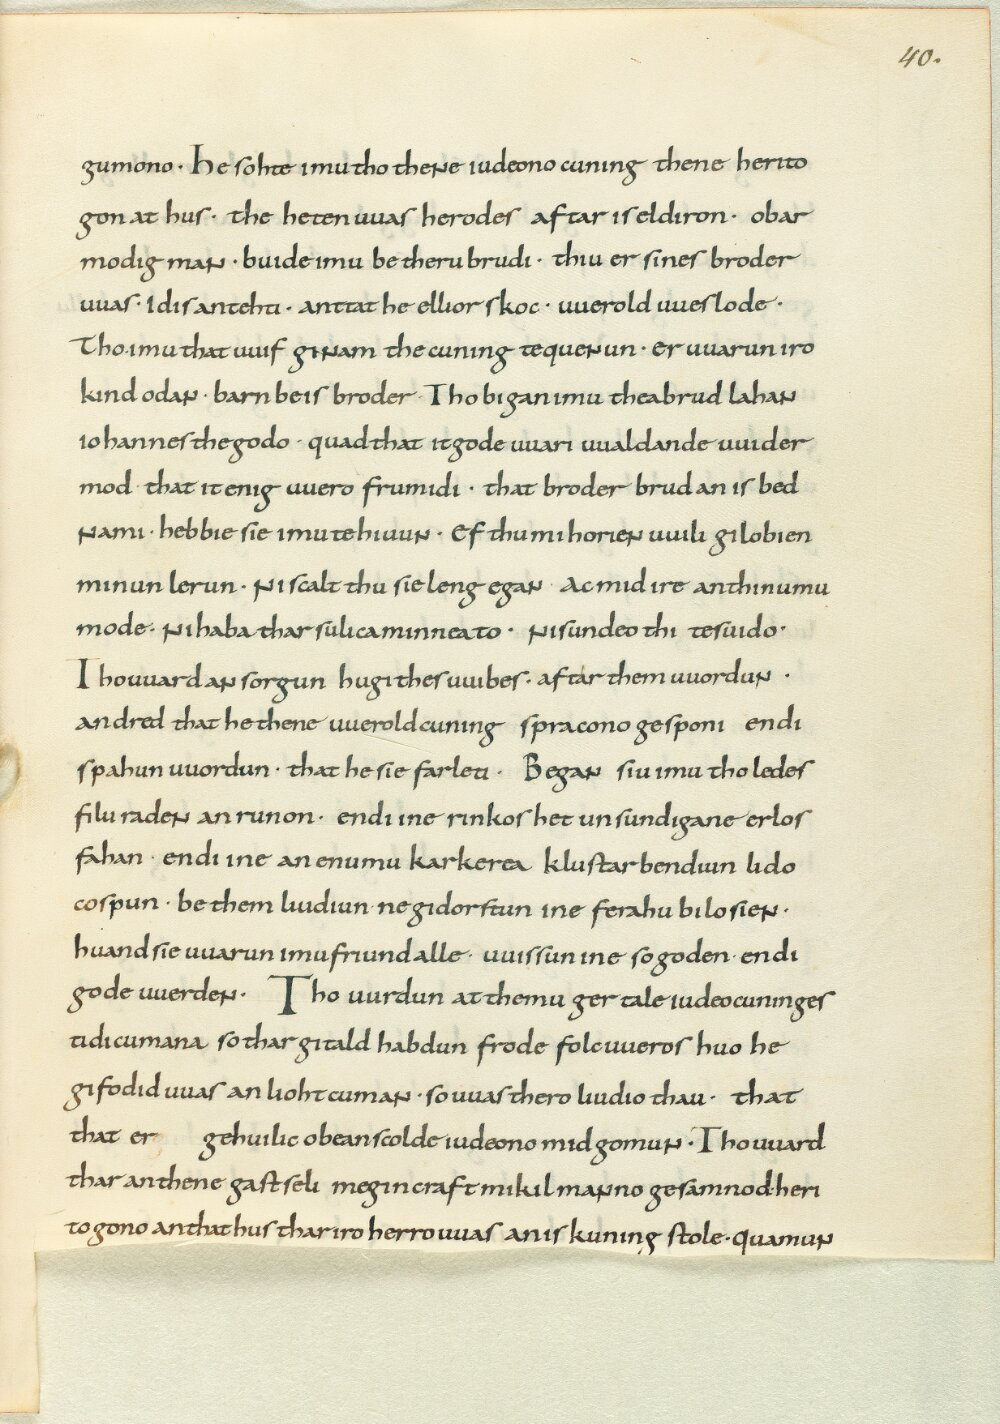 40.
gumono · he sohte imu tho thene iudeono cuning thene herito
gon at hus · the heten uuas herodes aftar is eldiron · obar
modig man · buide imu be theru brudi · thiu er sines broder
uuas · idis antehti · anttat he ellior skoc · uuerold uueslode ·
Tho imu that uuif ginam the cuning te quenun · er uuarun iro
kind odan · barn be is broder · Tho bigan imu thea brud lahan
iohannes the godo · quad that it gode uuari uualdande uuider
mod · that it enig uuero frumidi · that broder brud an is bed
nami · hebbie sie imu te hiuun · Ef thu mi horien uuili gilobien
minun lerun · ni scalt thu sie leng egan · ac mid ire an thinumu
mode · ni haba thar sulica minnea to · ni sundeo thi te suido ·
Tho uuard an sorgun hugi thes uuibes · aftar them uuordun ·
andred that he thene uueroldcuning spracono gesponi endi
spahun uuordun · that he sie farleti · Began siu imu tho ledes
filu raden an runon · endi ine rinkos het unsundigane erlos
fahan · endi ine an enumu karkerea klustarbendiun lido
cospun · be them liudiun ne gidorstun ine ferahu bilosien ·
huand sie uuarun imu friund alle · uuissun ine so goden · endi
gode uuerden · Tho uurdun at themu gertale iudeo cuninges
tidi cumana so thar gitald habdun frode folcuueros huo he
gifodid uuas an lioht cuman · so uuas thero liudio thau · that
that er gehuilic obean scolde iudeono mid gomun · Tho uuard
thar an thene gastseli megincraft mikil manno gesamnod heri
togono an that hus thar iro herro uuas an is kuning stole · quamun